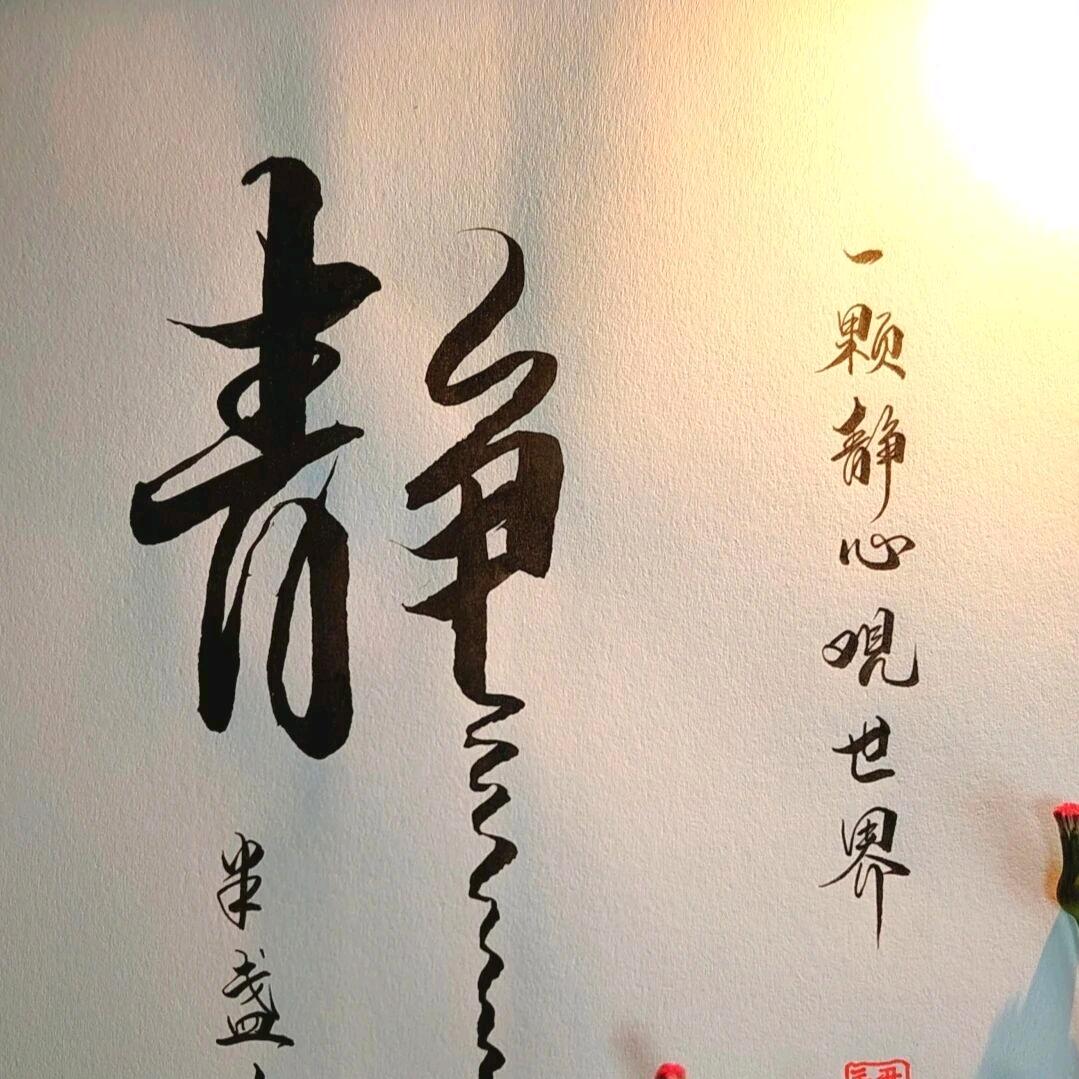 一颗静心观世界
静
半盏